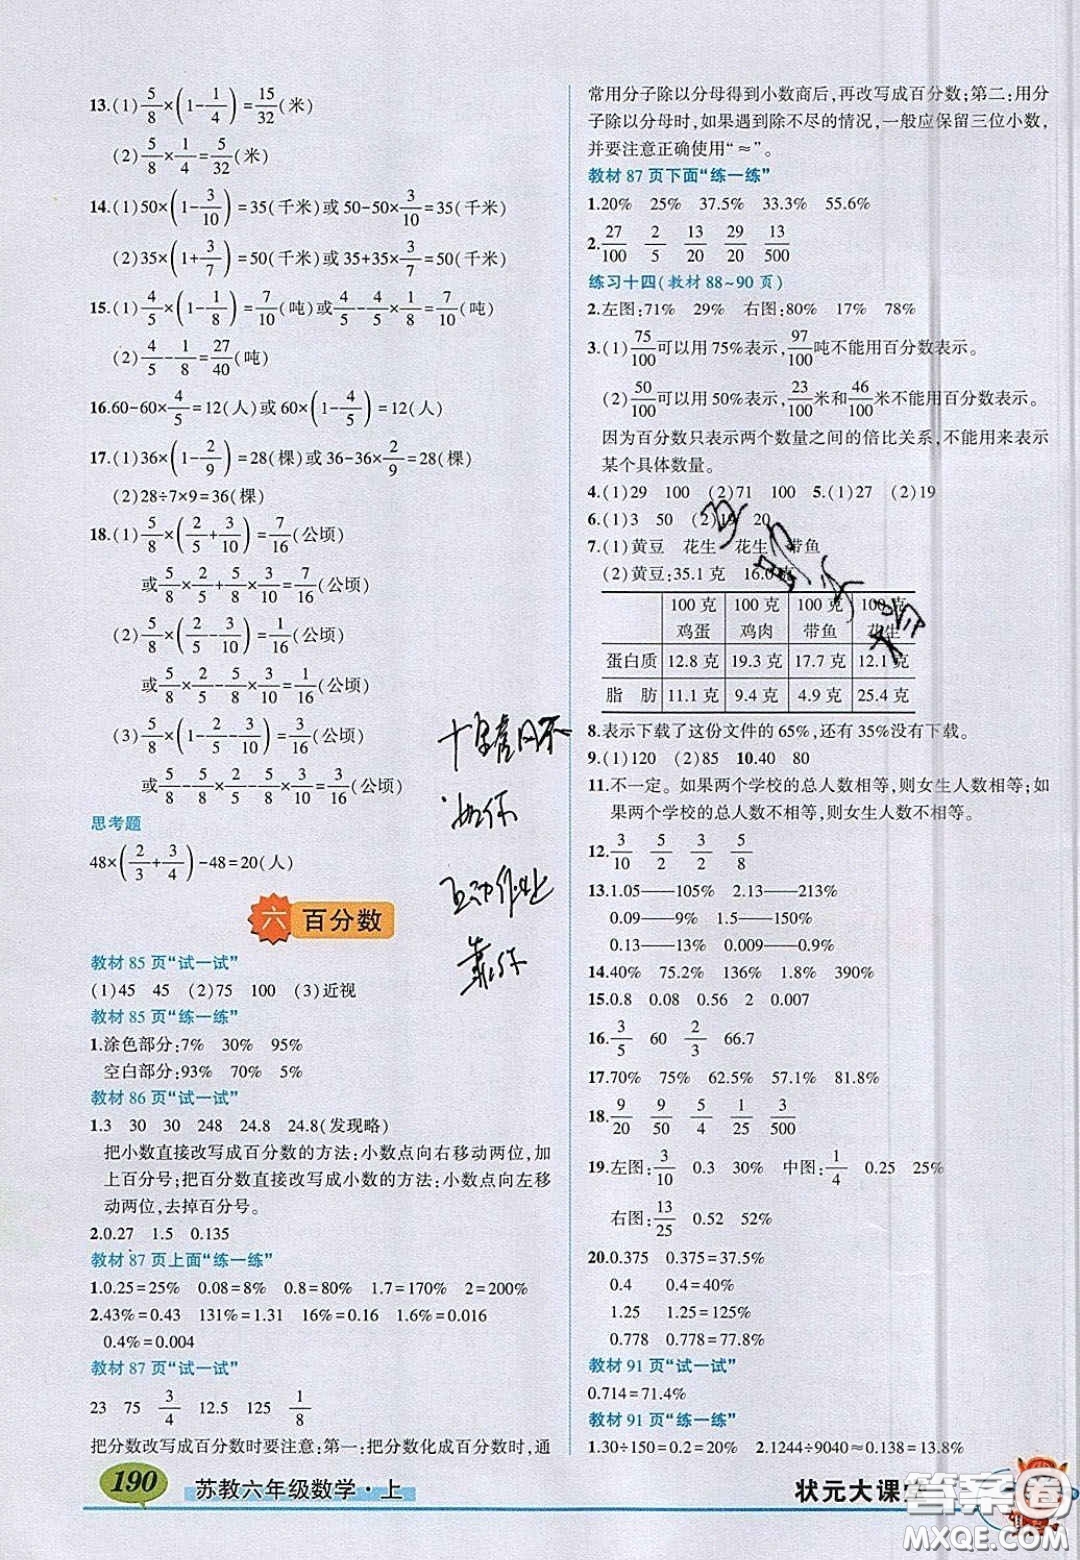 13.(1)5/8×(1-1/4)=15/32(米)
(2)5/8×1/4=5/32(米)
14.(1)50×(1-3/10)=35(千米)或50-50×3/10=35(千米)
(2)35×(1+3/7)=50(千米)或35+35×3/7=50(千米)
15.(1)4/5×(1-1/8)=7/10(吨)或4/5-4/5×1/8=7/10(吨)
(2)4/5-1/8=27/40(吨)
16.60-60×4/5=12(人)或60×(1-4/5)=12(人)
17.(1)36×(1-2/9)=28(棵)或36-36×2/9=28(棵)
(2)28÷7×9=36(棵)
18.(1)5/8×(2/5+3/10)=7/16(公顷)
或5/8×2/5+5/8×3/10=7/16(公顷)
(2)5/8×(2/5-3/10)=1/16(公顷)
或5/8×2/5-5/8×3/10=1/16(公顷)
(3)5/8×(1-2/5-3/10)=3/16(公顷)
或5/8-5/8×2/5-5/8×3/10=3/16(公顷)
思考题
48×(2/3+3/4)-48=20(人)
六 百分数
教材85页“试一试”
(1)45 45 (2)75 100 (3)近视
教材85页“练一练”
1.涂色部分:7% 30% 95%
空白部分:93% 70% 5%
教材86页“试一试”
1.3 30 30 248 24.8 24.8(发现略)
把小数直接改写成百分数的方法:小数点向右移动两位,加
上百分号;把百分数直接改写成小数的方法:小数点向左移
动两位,去掉百分号。
2.0.27 1.5 0.135
教材87页上面“练一练”
1.0.25=25% 0.08=8% 0.8=80% 1.7=170% 2=200%
2.43%=0.43 131%=1.31 16%=0.16 1.6%=0.016
0.4%=0.004
教材87页“试一试”
23 75 3/4 12.5 125 1/8
把分数改写成百分数时要注意:第一:把分数化成百分数时,通
常用分子除以分母得到小数商后,再改写成百分数;第二:用分
子除以分母时,如果遇到除不尽的情况,一般应保留三位小数,
并要注意正确使用“≈”。
教材87页下面“练一练”
1.20% 25% 37.5% 33.3% 55.6%
2.27/100 2/5 13/20 29/20 13/500
练习十四(教材88~90页)
2.左图:71% 29% 右图:80% 17% 78%
3.(1)75/100可以用75%表示,97/100吨不能用百分数表示。
(2)50/100可以用50%表示,23/100米和46/100米不能用百分数表示。
因为百分数只表示两个数量之间的倍比关系,不能用来表示
某个具体数量。
4.(1)29 100 (2)71 100 5.(1)27 (2)19
6.(1)3 50 (2)19 20
7.(1)黄豆 花生 花生 带鱼
(2)黄豆:35.1克 16.0克
100克 100克 100克 100克
鸡蛋 鸡肉 带鱼 花生
蛋白质 12.8克 19.3克 17.7克 12.1克
脂 肪 11.1克 9.4克 4.9克 25.4克
8.表示下载了这份文件的65%,还有35%没有下载。
9.(1)120 (2)85 10.40 80
11.不一定。如果两个学校的总人数相等,则女生人数相等;如
果两个学校的总人数不相等,则女生人数不相等。
12.3/10 5/2 3/2 5/8
13.1.05——105% 2.13——213%
0.09——9% 1.5——150%
0.13——13% 0.009——0.9%
14.40% 75.2% 136% 1.8% 390%
15.0.8 0.08 0.56 2 0.007
16.3/5 60 2/3 66.7
17.70% 75% 62.5% 57.1% 81.8%
18.9/20 91/50 5/4 1/50 3/500
19.左图:3/10 0.3 30% 中图:1/4 0.25 25%
右图:13/25 0.52 52%
20.0.375 0.375=37.5%
0.4 0.4=40%
1.25 1.25=125%
0.778 0.778=77.8%
教材91页“试一试”
0.714=71.4%
教材91页“练一练”
1.30÷150=0.2=20% 2.1244÷9040≈0.138=13.8%
190 苏教六年级数学·上
状元大课
答案圈
MXQE.COM